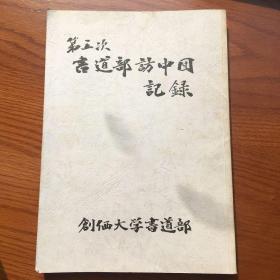 第三次
書道部訪中団
記録
創価大学書道部